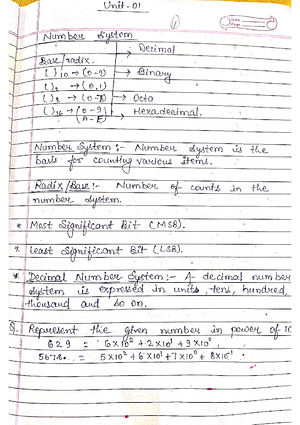 Unit-01
Number System
Base/radix.
→ Decimal
( )10 → (0-9)
→ Binary
( )2 → (0,1)
( )8 → (0-7) → Octa
( )16 → (0-9) → Hexadecimal.
(A-F)
Number System :- Number system is the
basis for counting various items.
Radix/Base :- Number of counts in the
number system.
* Most Significant Bit (MSB).
* Least Significant Bit (LSB).
* Decimal Number System :- A decimal number
system is expressed in units, tens, hundred,
thousand and so on.
Q. Represent the given number in power of 10
629 = 6×10² + 2×10¹ + 9×10⁰
= 5×10² + 6×10¹ + 7×10⁰ + 8×10⁻¹